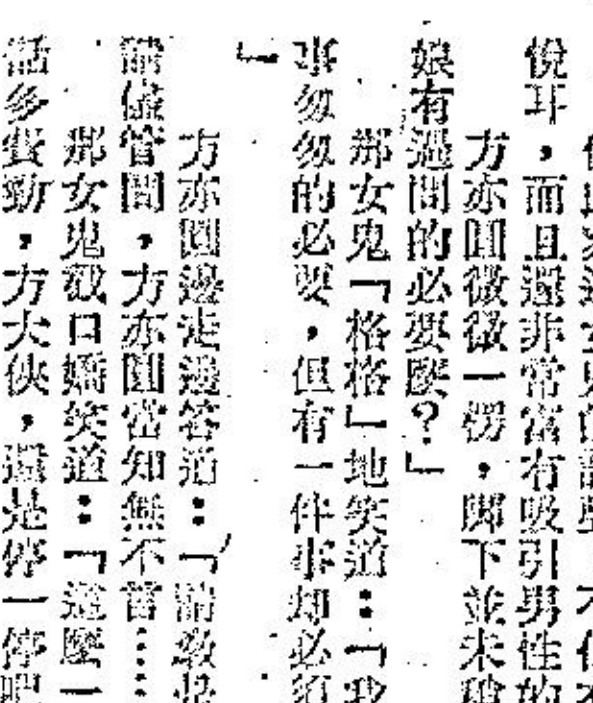 悅耳，而且還非常富有吸引男性的
方亦圓微微一愣，脚下並未
娘有過問的必要麼？」
那女鬼「格格」地笑道：「我
事匆匆的必要，但有一件事却必須
」
方亦圓邊走邊答道：「請教
請儘管問，方亦圓當知無不言……
那女鬼截口嬌笑道：「這麼一
話多費勁，方大俠，還是停一停吧